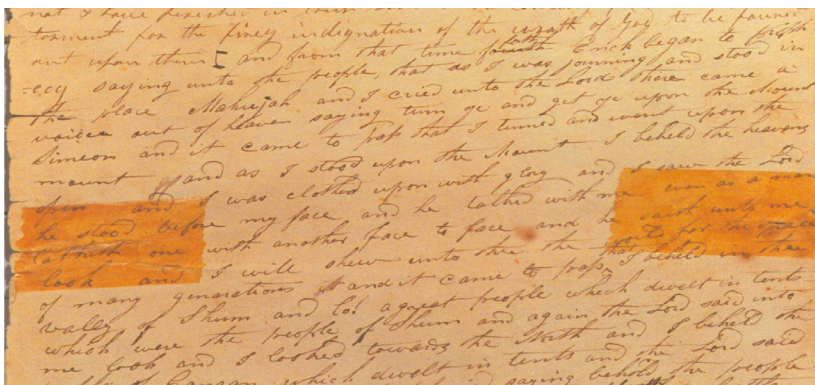 not & have perished in their
torment for the firey indignation of the wrath of God to be poured
out upon them [ and from that time forth Enock began to proph
=ecy saying unto the people, that as I was journing and stood in
the place Mahujah and I cried unto the Lord there came a
voice out of heaven saying turn ye and get ye upon the Mount
Simeon and it came to pass that I turned and went upon the
mount and as I stood upon the Mount I beheld the heavens
open and I was clothed upon with glory and I saw the Lord
he stood before my face and he talked with me even as a man
talketh one with another face to face and he saith unto me
look and I will shew unto thee the for the space
of many generations and it came to pass that I beheld in the
vally of Shum and lo! a great people which dwelt in tents
which were the people of Shum and again the Lord said unto
me look and I looked towards the North and I beheld the
of Canaan which dwelt in tents and the Lord said
saying behold the people